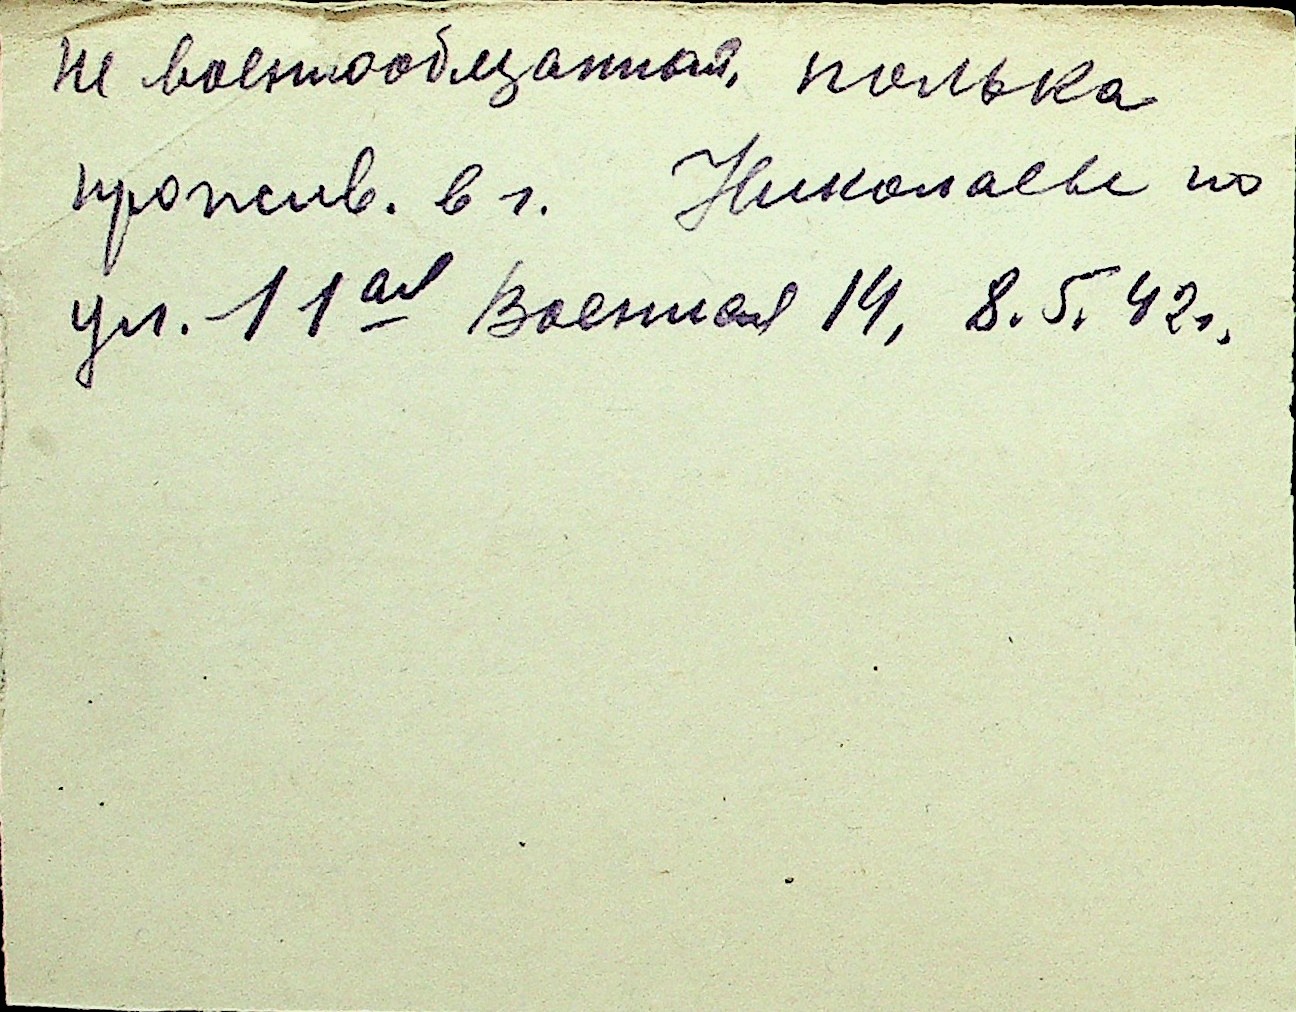 Не военнообязанная, полька
прожив. в г. Николаеве по
ул. 11ая Военная 14, 8.5.42г.